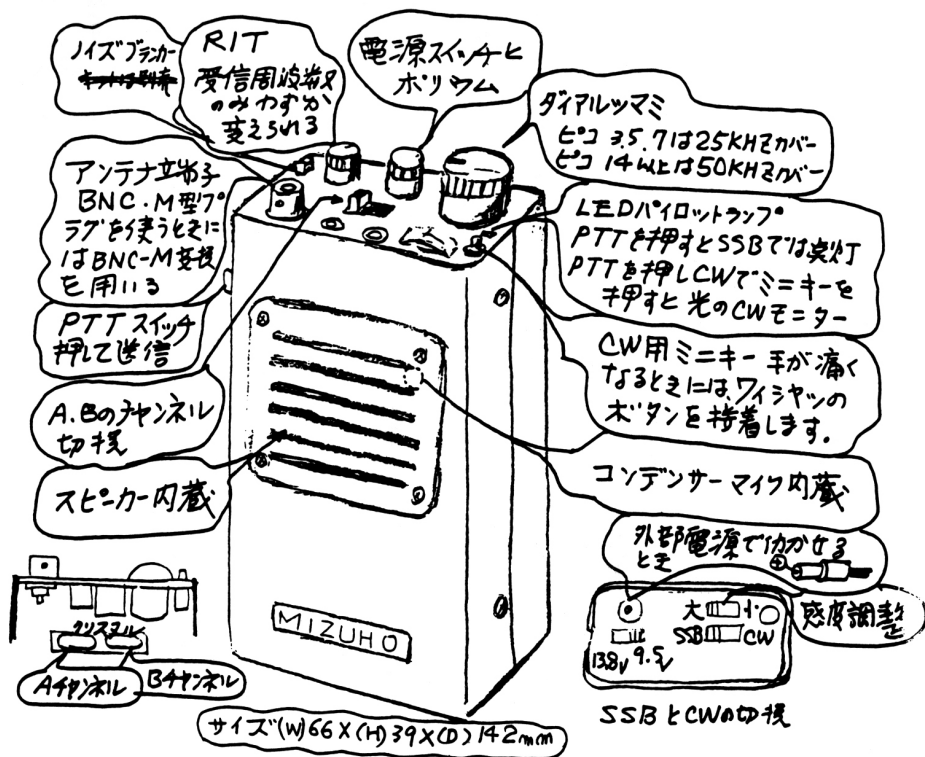 ノイズブランカー
RIT
受信周波数
のみわずか
変えられる
電源スイッチと
ボリウム
ダイアルツマミ
ピコ 3.5.7は25KHzカバー
ピコ 14以上は50KHzカバー
アンテナ立耑子
BNC.M型プ
ラグを使うときに
はBNC-M変換
を用いる
LEDパイロットランプ
PTTを押すとSSBでは点灯
PTTを押しCWでミニキーを
押すと光のCWモニター
PTTスイッチ
押して送信
CW用ミニキー 手が痛く
なるときには、ワイシャツの
ボタンを接着します.
A.Bのチャンネル
切換
スピーカー内蔵
コンデンサーマイク内蔵
外部電源で働かせる
とき
⊕
大 小
感度調整
SSB CW
13.8V 9.5V
SSBとCWの切換
クリスタル
Aチャンネル
Bチャンネル
MIZUHO
サイズ(W)66×(H)39×(D)142mm